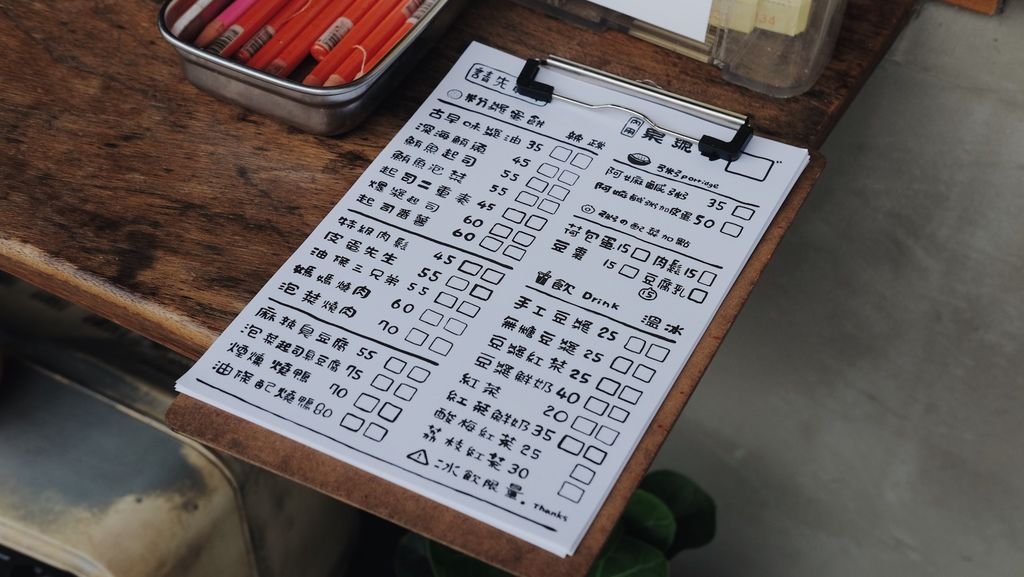 請先
粉漿蛋餅 辣 蔬
古早味醬油 35
深海鮪魚 45
鮪魚起司 55
鮪魚泡菜 55
起司二重奏 45
爆漿起司 60
起司番薯 60
特級肉鬆 45
皮蛋先生 55
油條三兄弟 55
媽媽燒肉 60
泡菜燒肉 70
麻辣臭豆腐 55
泡菜起司臭豆腐 75
煙燻燒鴨 70
油條配燒鴨 80
內用 桌號
粥porridge
阿嬤鹹粥 35
阿嬤鹹粥加皮蛋 50
粥の配菜加點
荷包蛋15 肉鬆15
皮蛋 15 豆腐乳 15
飲 Drink 溫 冰
手工豆漿 25
無糖豆漿 25
豆漿紅茶 25
豆漿鮮奶 40
紅茶 20
紅茶鮮奶 35
酸梅紅茶 25
荔枝紅茶 30
冰飲限量。Thanks
34